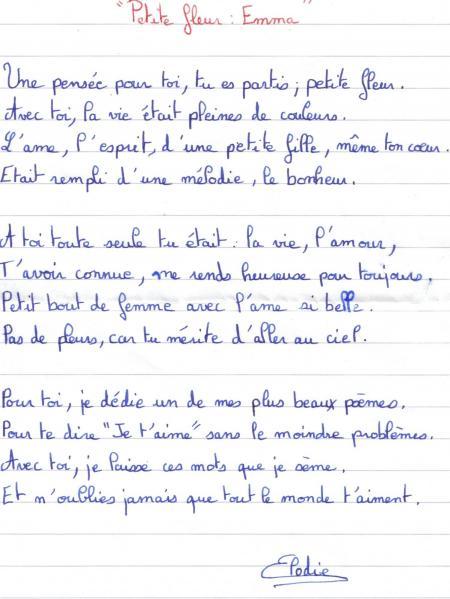 "Petite fleur : Emma"
Une pensée pour toi, tu es partis ; petite fleur.
Avec toi, la vie était pleines de couleurs.
L'ame, l'esprit, d'une petite fille, même ton cœur.
Etait rempli d'une mélodie, le bonheur.
A toi toute seule tu était : la vie, l'amour,
T'avoir connue, me rends heureuse pour toujours.
Petit bout de femme avec l'ame si belle.
Pas de pleurs, car tu mérite d'aller au ciel.
Pour toi, je dédie un de mes plus beaux poèmes.
Pour te dire "Je t'aime" sans le moindre problèmes.
Avec toi, je laisse ces mots que je sème.
Et n'oublies jamais que tout le monde t'aiment.
Elodie